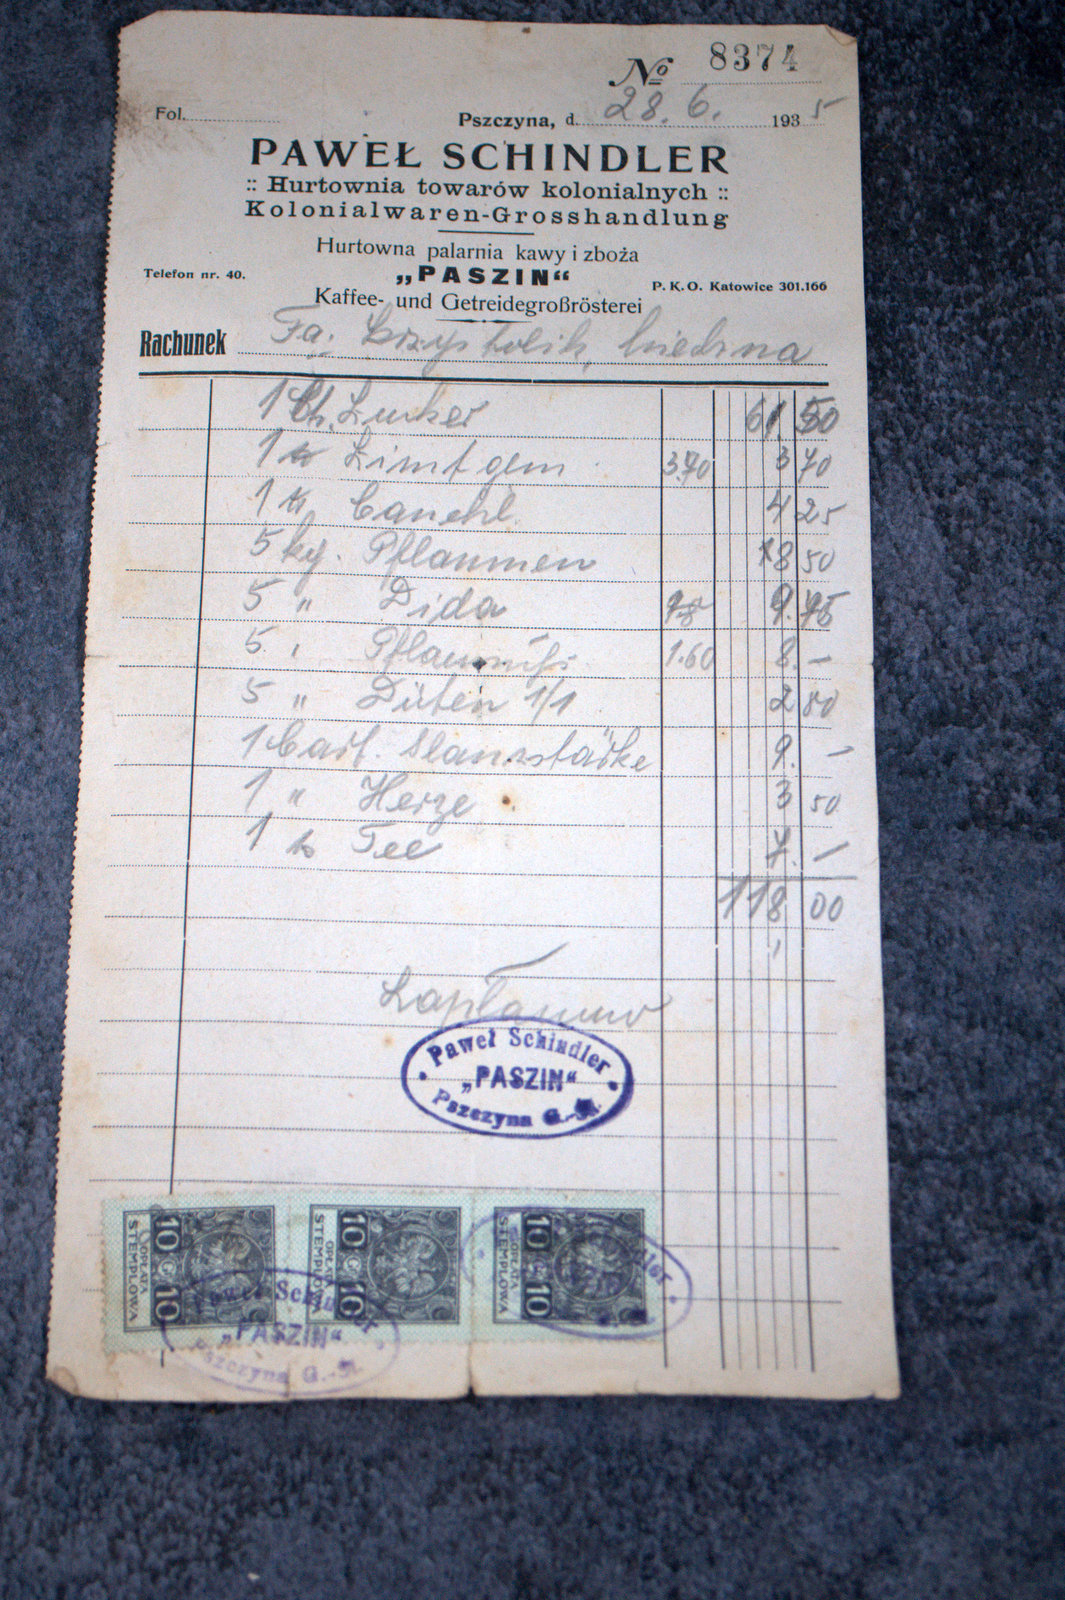 № 8374
Fol. Pszczyna, d. 28. 6. 1935
PAWEŁ SCHINDLER
:: Hurtownia towarów kolonialnych ::
Kolonialwaren-Grosshandlung
Hurtowna palarnia kawy i zboża
Telefon nr. 40. „PASZIN“ P. K. O. Katowice 301.166
Kaffee- und Getreidegroßrösterei
Rachunek Fa. Krzystolik, Miedzna
1 Zucker 61. 50
1 Zimt gem 3.70 3 70
1 Canehl 4 25
5 kg. Pflaumen 18 50
5 " Dida 9.75
5 " 1.60 8. –
5 " Düten 1/1 2 80
1 Cart. 9. –
1 " Herze 3 50
1 Tee 7. –
118 00
Zapłacono
Paweł Schindler
„PASZIN“
Pszczyna G.-Śl.
10 C 10 OPŁATA STEMPLOWA
10 C 10 OPŁATA STEMPLOWA
10 10 OPŁATA STEMPLOWA
Paweł Schindler
„PASZIN“
Pszczyna G.-Śl.